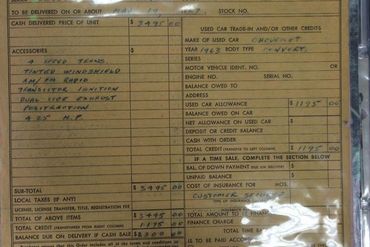 TO BE DELIVERED ON OR ABOUT MAY 19, STOCK NO.
CASH DELIVERED PRICE OF UNIT $ 5495 00
USED CAR TRADE-IN AND/OR OTHER CREDITS
MAKE OF USED CAR CHEVROLET
YEAR 1963 BODY TYPE CONVERT.
ACCESSORIES
SERIES
4 SPEED TRANS.
TINTED WINDSHIELD
AM/FM RADIO
TRANSISTOR IGNITION
DUAL SIDE EXHAUST
POSITRACTION
435 H.P.
MOTOR VEHICLE IDENT. NO.
ENGINE NO. SERIAL NO.
BALANCE OWED TO
ADDRESS
USED CAR ALLOWANCE $ 1195 00
BALANCE OWED ON CAR
NET ALLOWANCE ON USED CAR $
DEPOSIT OR CREDIT BALANCE
CASH WITH ORDER
TOTAL CREDIT (TRANSFER TO LEFT COLUMN) $ 1195 00
IF A TIME SALE, COMPLETE THE SECTION BELOW
BAL. OF DOWN PAYMENT
UNPAID BALANCE $
SUB-TOTAL $ 5495 00
COST OF INSURANCE FOR MOS.
LOCAL TAXES (IF ANY)
LICENSE, LICENSE TRANSFER, TITLE, REGISTRATION FEE
CUSTOMER
TOTAL OF ABOVE ITEMS $ 5495 00
TOTAL AMOUNT TO BE FINANCED
TOTAL CREDIT 1195 00
FINANCE CHARGE
BALANCE DUE ON DELIVERY IF CASH SALE
TOTAL TIME
IS TO BE PAID